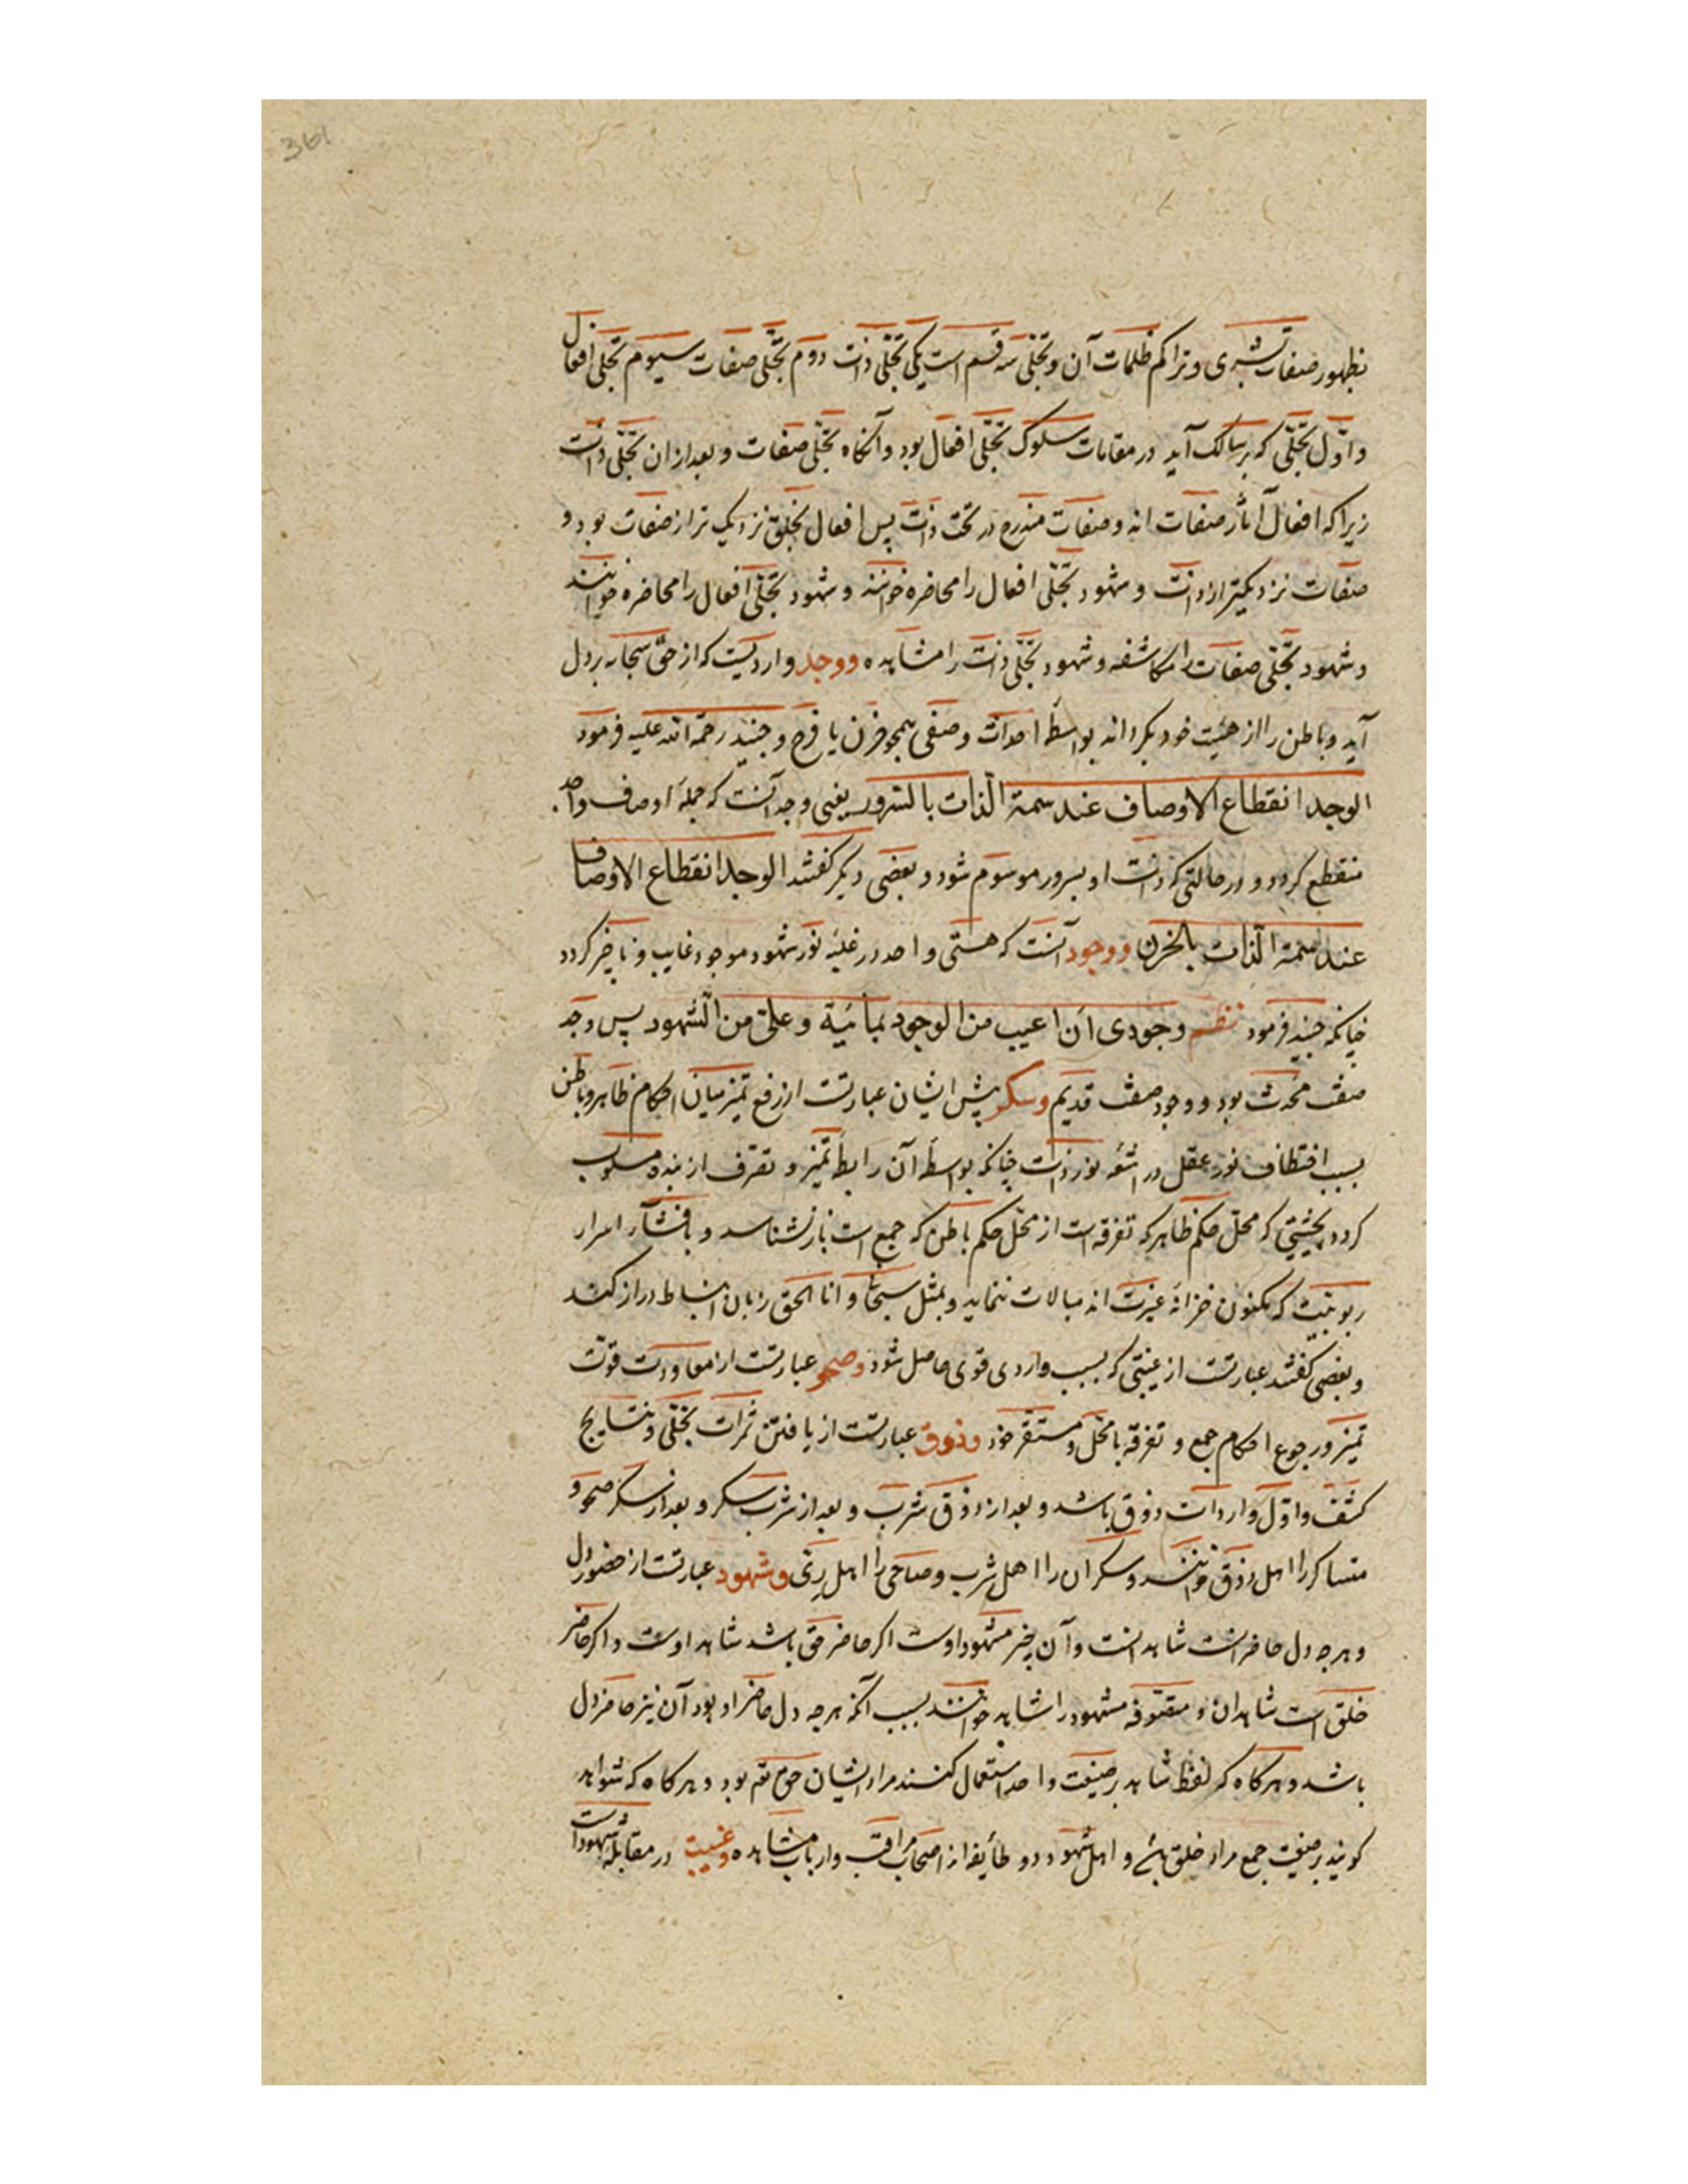 361
بظهور صفات بشری و تراکم ظلمات آن و تجلّی سه قسم است یکی تجلّی ذات دوم تجلّی صفات سیوم تجلّی افعال
و اوّل تجلّی که بر سالک آید در مقامات سلوک تجلّی افعال بود و آنکاه تجلّی صفات و بعد از ان تجلّی ذات
زیرا که افعال آثار صفات اند و صفات مندرج در تحت ذات پس افعال بخلق نزدیک تر از صفات بود و
صفات نزدیکتر از ذات و شهود تجلّی افعال را محاضره خوانند و شهود تجلّی افعال را محاضره خوانند
و شهود تجلّی صفات را مکاشفه و شهود تجلّی ذات را مشاهده و وجد واردیست که از حقّ سبحانه بر دل
آید و باطن را از هیئت خود بکرداند بواسطهٔ احداث وصفی همچو حزن یا فرح و جنید رحمة الله علیه فرمود
الوجد انقطاع الاوصاف عند سمة الذّات بالسّرور یعنی وجد آنست که جملهٔ اوصاف واجد
منقطع کردد و در حالتی که ذات او بسرور موسوم شود و بعضی دیکر کفتند الوجد انقطاع الاوصاف
عند سمة الذّات بالحزن و وجود آنست که هستی واجد در غلبهٔ نور شهود موجود غایب و ناچیز کردد
چنانکه جنید فرمود نظم وجودی ان اغیب من الوجود بما یبد و علیّ من الشّهود پس وجد
صفت محدث بود و وجود صفت قدیم و سکر پیش ایشان عبارتست از رفع تمیز میان احکام ظاهر و باطن
بسبب اختطاف نور عقل در اشعّهٔ نور ذات چنانکه بواسطهٔ آن رابطهٔ تمیز و تصرّف از بنده مسلوب
کردد بحیثیتی که محلّ حکم ظاهر که تفرقه است از محلّ حکم باطن که جمع است باز نشناسد و بافشآء اسرار
ربوبیّت که مکنون خزانهٔ غیرت اند مبالات ننماید و بمثل سبحانی و انا الحق زبان انبساط دراز کند
و بعضی کفتند عبارتست از غیبتی که بسبب واردی قوی حاصل شود و صحو عبارتست از معاودت قوّت
تمیز و رجوع احکام جمع و تفرقه با محلّ و مستقرّ خود و ذوق عبارتست از یافتن ثمرات تجلّی و نتایج
کشف و اوّل واردات ذوق باشد و بعد از ذوق شرب و بعد از شرب سکر و بعد از سکر صحو و
متساکر را اهل ذوق خوانند و سکران را اهل شرب و صاحی را اهل ریّ و شهود عبارتست از حضور دل
و هرچه دل حاضر انست شاهد انست و آن چیز مشهود اوست اکر حاضر حقّ باشد شاهد اوست و اکر حاضر
خلق است شاهد ان و متصوّفه مشهود را شاهد خوانند بسبب آنکه هرچه دل حاضر او بود آن نیز حاضر دل
باشد و هرکاه که لفظ شاهد بر صیغت واحد استعمال کنند مراد ایشان حق بود و هرکاه که شواهد
کویند بر صیغت جمع مراد خلق باشد و اهل شهود دو طایفه اند اصحاب مراقبت و ارباب مشاهده و غیبت در مقابلهٔ شهود است